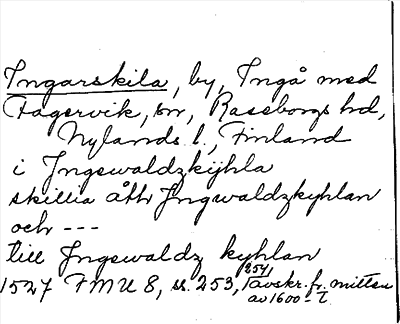 Ingarskila, by, Ingå med
Fagervik, sn, Raseborgs hd,
Nylands l., Finland
i Jngewaldzkÿhla
skillia åth Jngwaldzkyhlan
och ---
till Jngewaldz kyhlan
1527 FMU 8, ss. 253, 254, avskr. fr. mitten
av 1600-t.